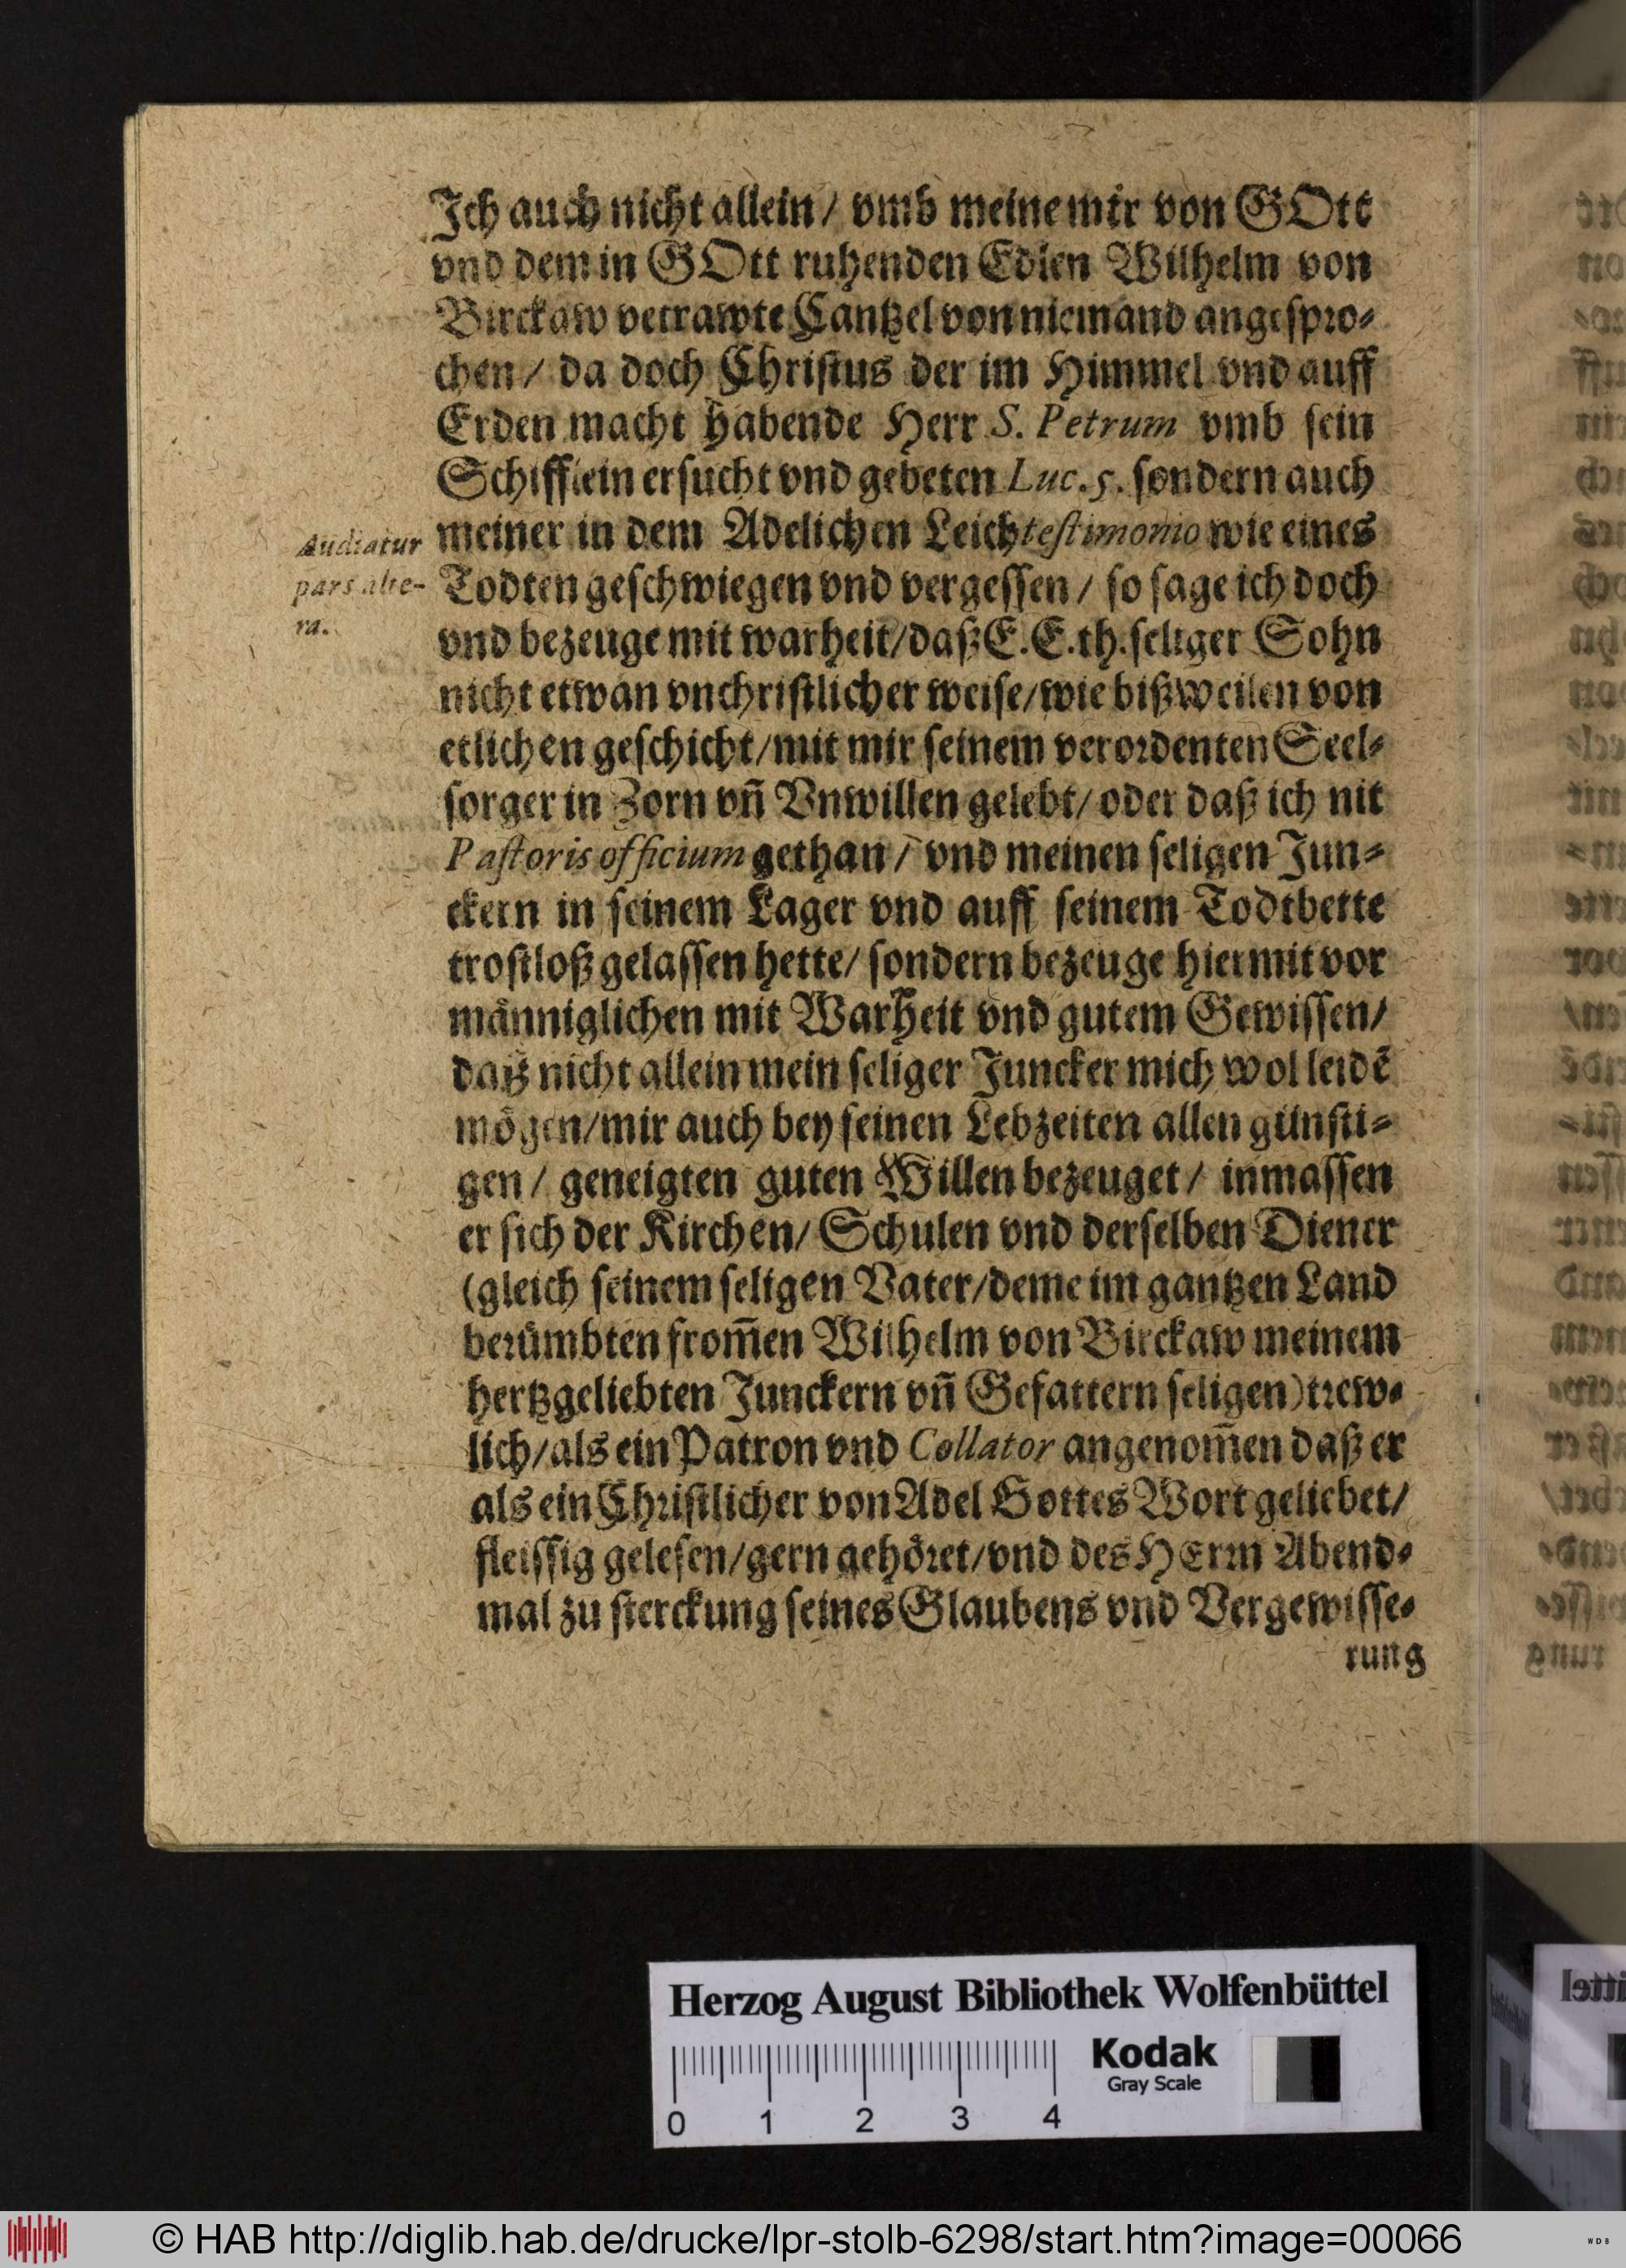 Ich auch nicht allein / vmb meine mir von GOtt
vnd dem in GOtt ruhenden Edlen Wilhelm von
Birckaw vertrawte Cantzel von niemand angespro⸗
chen / da doch Christus der im Himmel vnd auff
Erden macht habende Herr S. Petrum vmb sein
Schifflein ersucht vnd gebeten Luc. 5. sondern auch
meiner in dem Adelichen Leichtestimonio wie eines
Audiatur
pars alte-
ra.
Todten geschwiegen vnd vergessen / so sage ich doch
vnd bezeuge mit warheit/daß E. E. th. seliger Sohn
nicht etwan vnchristlicher weise/wie bißweilen von
etlichen geschicht/mit mir seinem verordenten Seel⸗
sorger in Zorn vñ Vnwillen gelebt/ oder daß ich nit
Pastoris officium gethan / vnd meinen seligen Jun⸗
ckern in seinem Lager vnd auff seinem Todtbette
trostloß gelassen hette/ sondern bezeuge hiermit vor
männiglichen mit Warheit vnd gutem Gewissen/
daß nicht allein mein seliger Juncker mich wol leidē
mögen/mir auch bey seinen Lebzeiten allen günsti⸗
gen / geneigten guten Willen bezeuget / inmassen
er sich der Kirchen/ Schulen vnd derselben Diener
(gleich seinem seligen Vater/deme im gantzen Land
berümbten from̃en Wilhelm von Birckaw meinem
hertzgeliebten Junckern vñ Gefattern seligen) trew⸗
lich/als ein Patron vnd Collator angenom̃en daß er
als ein Christlicher von Adel Gottes Wort geliebet/
fleissig gelesen/gern gehöret/vnd des HErrn Abend⸗
mal zu sterckung seines Glaubens vnd Vergewisse⸗
rung
Herzog August Bibliothek Wolfenbüttel
0 1 2 3 4
Kodak
Gray Scale
© HAB http://diglib.hab.de/drucke/lpr-stolb-6298/start.htm?image=00066
WDB